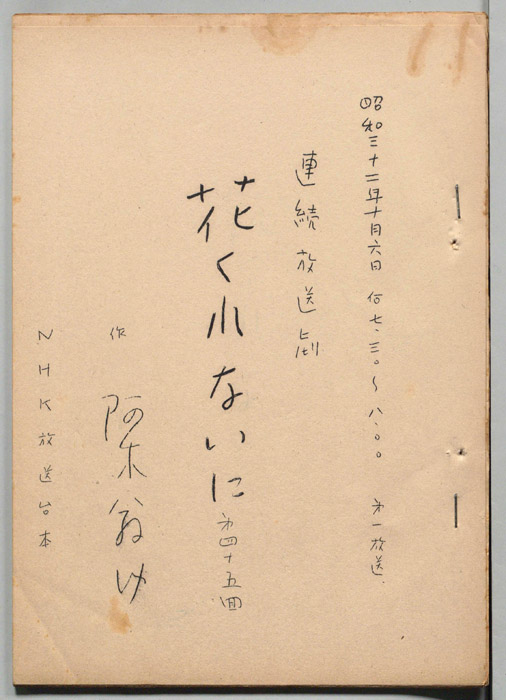 昭和三十二年十月六日 后七.三〇〜八.〇〇 第一放送
連続放送劇
花くれないに 第四十五回
作 阿木翁助
NHK放送台本